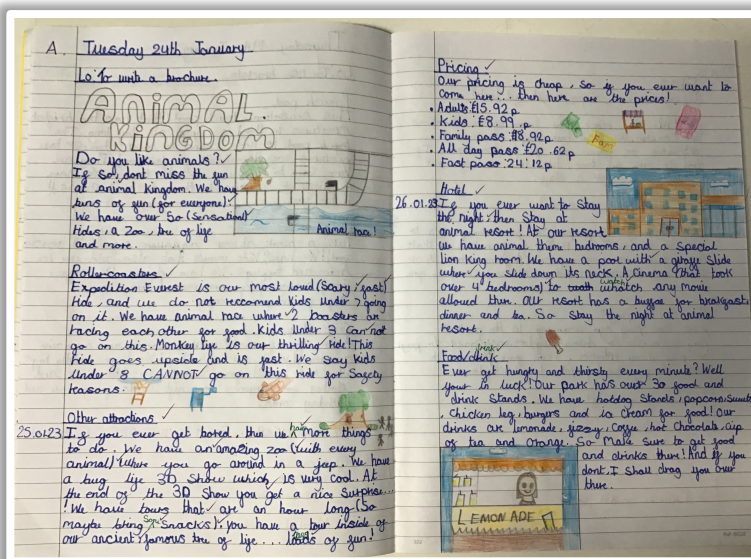 A. Tuesday 24th January
Lo: To write a brochure.
ANIMAL
KINGDOM
Do you like animals?
If so, dont miss the fun
at animal Kingdom. We have
tuns of fun (for everyone).
We have our 50 (Sensational)
rides, a Zoo, tree of life
and more.
Animal race!
Rollercoasters
Expedition Everest is our most loved (Scary, fast)
ride, and we do not reccomend Kids under 7 going
on it. We have animal race where 2 coasters are
racing each other for food. Kids under 9 can not
go on this. Monkey life is our thrilling ride! This
ride goes upside and is fast. We say kids
under 8 CANNOT go on this ride for Safety
reasons.
Other attractions
25.01.23 If you ever get bored, then we have more things
to do. We have an amazing zoo (with every
animal) where you go around in a jeep. We have
a bug life 3D Show which is very cool. At
the end of the 3D Show you get a nice Surprise...
! We have tours that are an hour long (So
maybe bring Some Snacks). you have a tour inside of
our ancient, famous tree of life... loads of fun!
Pricing
Our pricing is cheap, So if you ever want to
come here... then here are the prices!
. Adults: £15.92p
. Kids: £8.99.p
. Family pass: £18.92p
. All day pass: £20.62p
. Fast pass: 24:12p
Fast
Hotel
26.01.23 If you ever want to Stay
the night, then Stay at
animal resort! At our resort
we have animal theme bedrooms, and a Special
Lion King room. We have a pool with a giraffe Slide
where you slide down its neck. A cinema (that took
over 4 bedrooms) to watch whatch any movie
allowed there. Our resort has a buffae for breakfast,
dinner and tea. So Stay the night at animal
resort.
Food/drink
drink
Ever get hungry and thirsty every minute? Well
your in luck! Our park has over 30 food and
drink Stands. We have hotdog Stands, popcorn, Sweets
, Chicken leg, burgers and ice Cream for food! Our
drinks are lemonade, fizzy, Coffee, hot Chocolate, Cup
of tea and Orange. So Make sure to get food
and drinks there! And if you
dont, I Shall drag you over
there.
LEMONADE